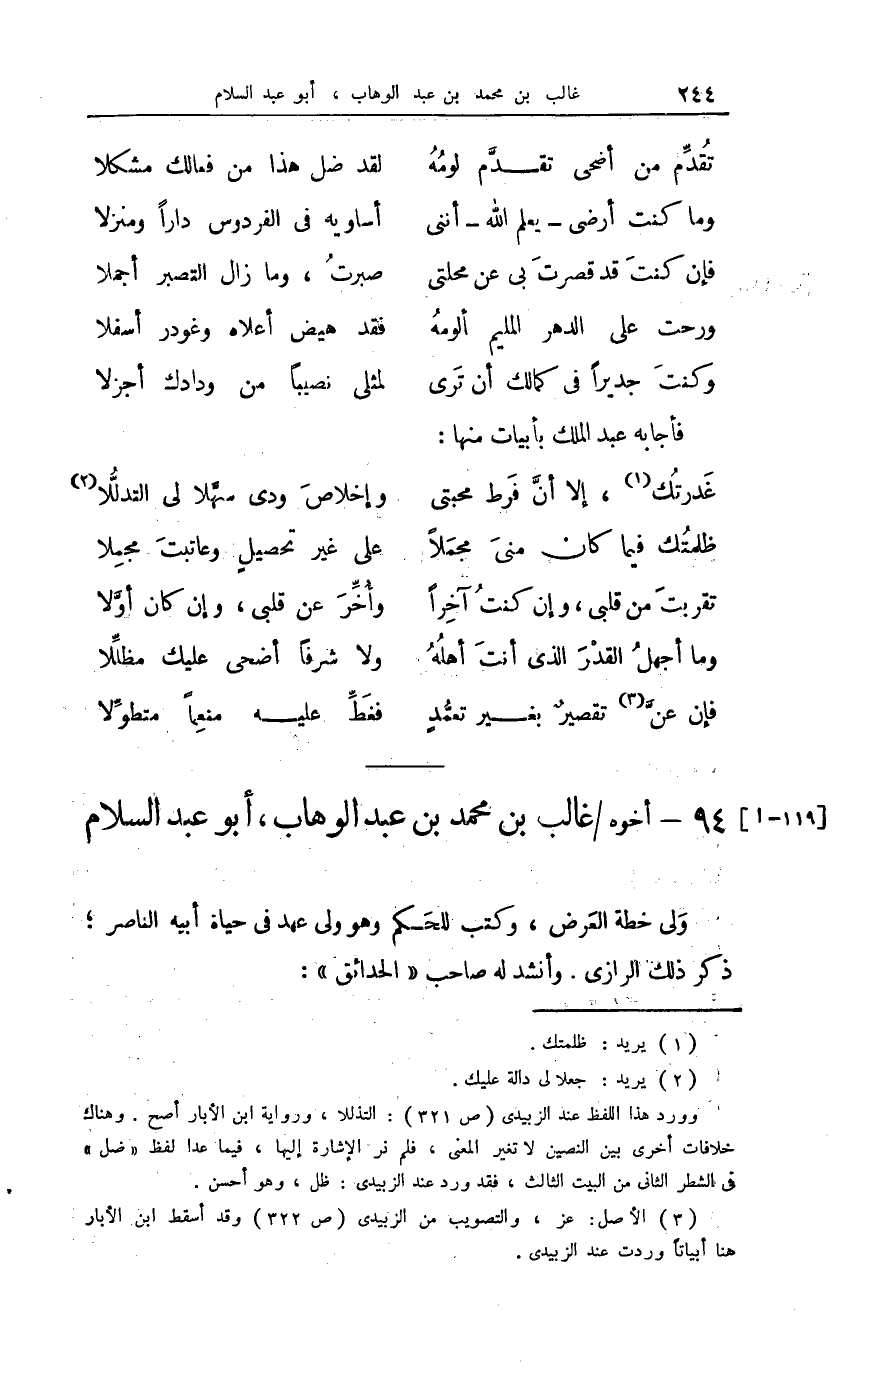 ٢٤٤ غالب بن محمد بن عبد الوهاب ، أبو عبد السلام
تُقدِّم من أضحى تقـــدَّم لومُهُ لقد ضل هذا من فعالك مشكلا
وما كنت أرضى – يعلم الله – أننى أساويه فى الفردوس داراً ومنزلا
فإن كنتَ قد قصرتَ بى عن محلتى صبرتُ ، وما زال التصبر أجملا
ورحت على الدهر المليم ألومهُ فقد هيض أعلاه وغودر أسفلا
وكنتَ جديراً فى كمالك أن تَرى لمثلى نصيباً من ودادك أجزلا
فأجابه عبد الملك بأبيات منها :
غَدرتُك(١) ، إلا أنَّ فَرط محبتى وإخلاصَ ودى سهَّلا لى التدلُّلا(٢)
ظلمتُك فيما كان منىَ مجمَلاً على غير تحصيلٍ وعاتبتَ مجمِلا
تقربتَ من قلبى ، وإن كنتُ آخِراً وأُخِّرَ عن قلبى ، وإن كان أوَّلا
وما أجهلُ القدْرَ الذى أنتَ أهلُهُ ولا شرفاً أضحى عليك مظلِّلا
فإن عنَّ(٣) تقصيرٌ بغـــير تعمُّدٍ فغَطِّ عليـــه منعِماً متطوِّلا
[١١٩-ا] ٩٤ – أخوه / غالب بن محمد بن عبد الوهاب ، أبو عبد السلام
وَلى خطة العَرض ، وكتب للحَـكم وهو ولى عهد فى حياة أبيه الناصر ؛
ذكر ذلك الرازى . وأنشد له صاحب « الحدائق » :
(١) يريد : ظلمتك .
(٢) يريد : جعلا لى دالة عليك .
وورد هذا اللفظ عند الزبيدى (ص ٣٢١) : التذللا ، ورواية ابن الأبار أصح . وهناك
خلافات أخرى بين النصين لا تغير المعنى ، فلم نر الإشارة إليها ، فيما عدا لفظ « ضل »
فى الشطر الثانى من البيت الثالث ، فقد ورد عند الزبيدى : ظل ، وهو أحسن .
(٣) الأصل : عز ، والتصويب من الزبيدى (ص ٣٢٢) وقد أسقط ابن الأبار
هنا أبياتاً وردت عند الزبيدى .